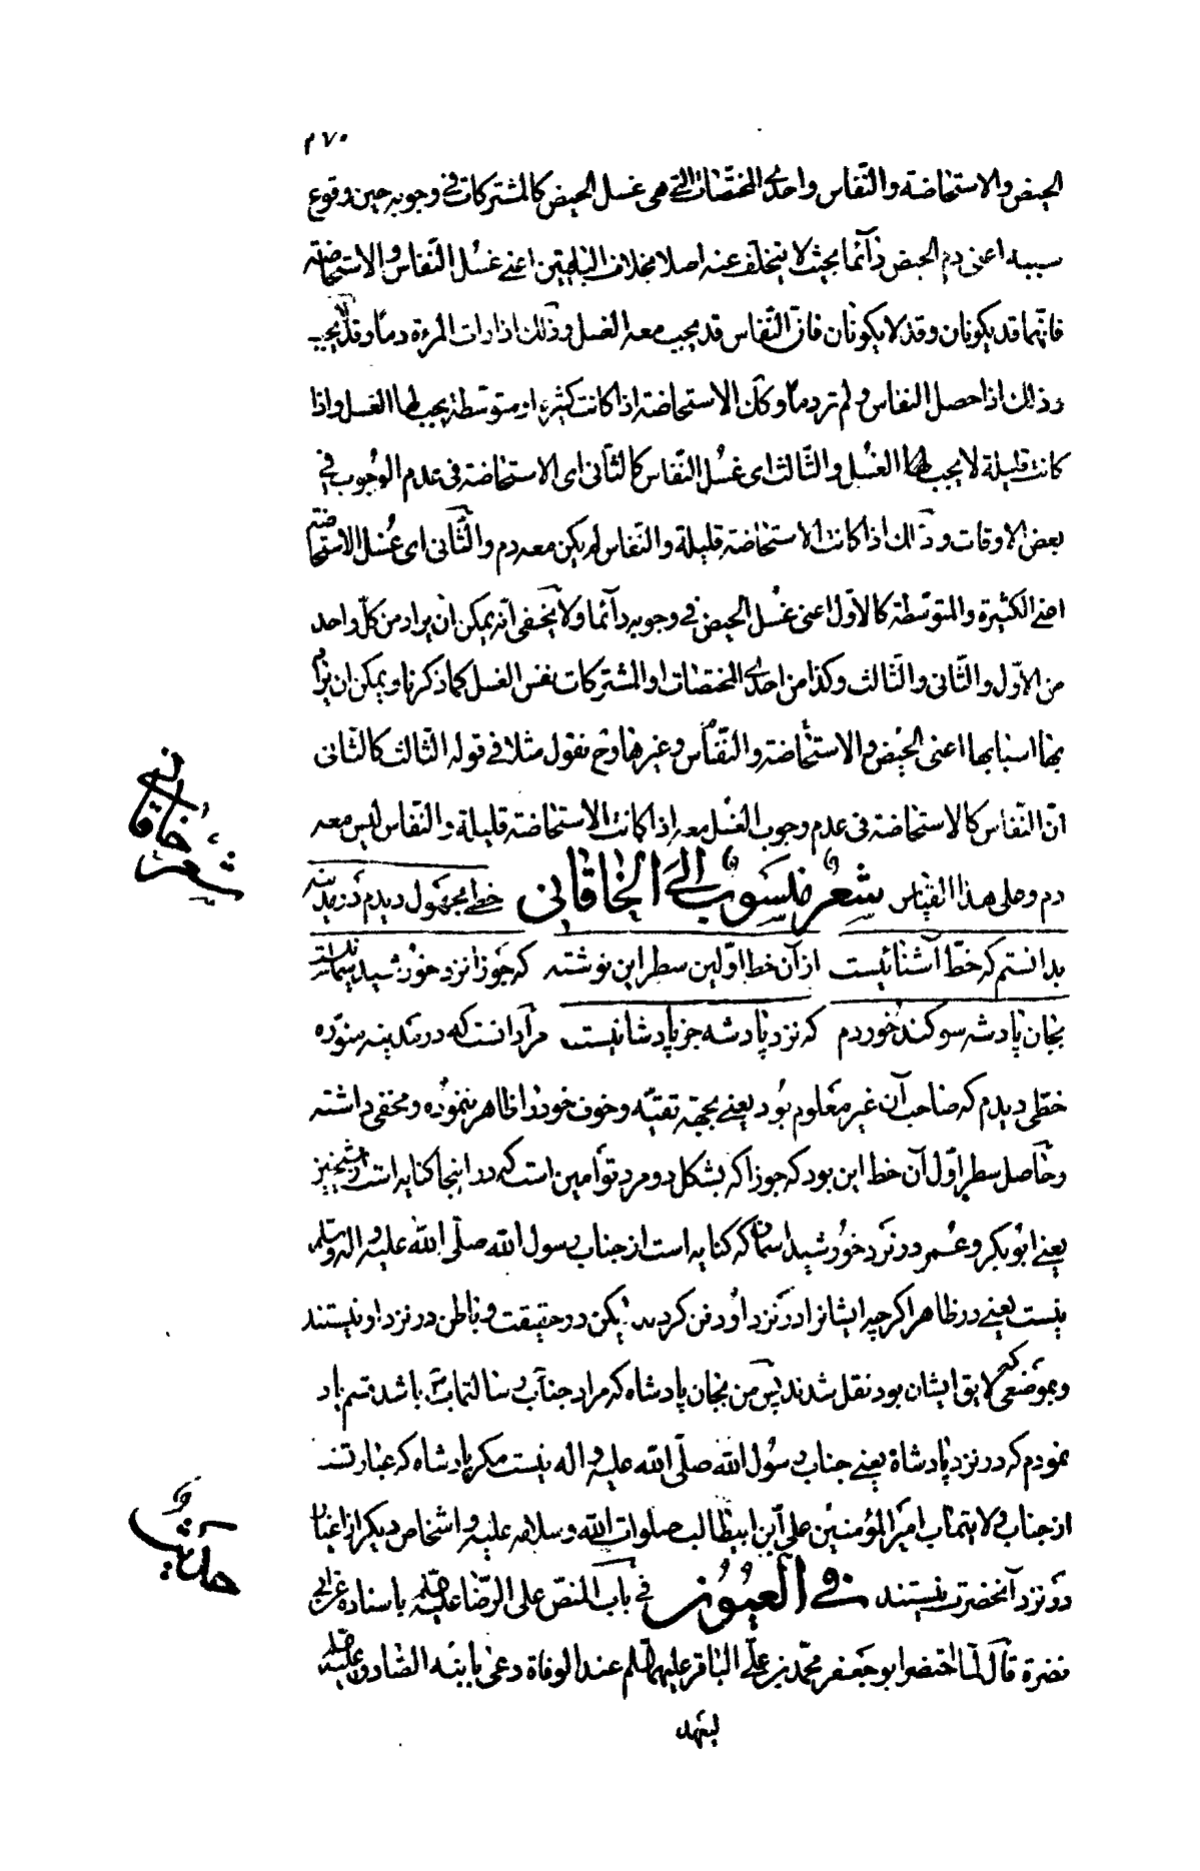 ۲۷۰
الحیض والاستحاضة والنّفاس واحدی المختصّات الّتی هی غسل الحیض کالمشترکات فی وجوبه حین وقوع
سببه اعنی دم الحیض دآئما بحیث لا یتخلّف عنه اصلا بخلاف الباقیتین اعنی غسل النّفاس والاستحاضة
فانّهما قد یکونان وقد لا یکونان فانّ النّفاس قد یجب معه الغسل وذلک اذا رات المرءة دما وقد لا یجب
وذلک اذا حصل النفاس ولم تر دما وکذلک الاستحاضة اذا کانت کثیرة او متوسّطة یجب لها الغسل واذا
کانت قلیلة لا یجب لها الغسل والثّالث ای غسل النّفاس کالثّانی ای الاستحاضة فی عدم الوجوب فی
بعض الاوقات وذلک اذا کانت الاستحاضة قلیلة والنّفاس لم یکن معه دم والثّانی ای غسل الاستحاضة
اعنی الکثیرة والمتوسّطة کالاوّل اعنی غسل الحیض فی وجوبه دآئما ولا یخفی انّه یمکن ان یراد من کلّ واحد
من الاوّل والثّانی والثّالث وکذا من احدی المختصّات او المشترکات نفس الغسل کما ذکرنا ویمکن ان یراد
بها اسبابها اعنی الحیض والاستحاضة والنّفاس وغیرها وح نقول مثلا فی قوله الثّالث کالثّانی
انّ النّفاس کالاستحاضة فی عدم وجوب الغسل معه اذا کانت الاستحاضة قلیلة والنّفاس لیس معه
دم وعلی هذا القیاس شعر منسوب الی الخاقانی خط مجهول دیدم در مدینه
بدانستم که خطّ آشنائیست از آن خط اوّلین سطر این نوشته که جوزا نزد خورشید سمائیست
بجان پادشه سوکند خوردم که نزد پادشه جز پادشا نیست مراد انست که در مدینه منوّره
خطّی دیدم که صاحب آن غیر معلوم بود یعنی بجهة تقیّه وخوف خود را ظاهر ننموده ومخفی داشته
وحاصل سطر اوّل آن خط این بود که جوزا که بشکل دو مرد توأمین است که در اینجا کنایه است از شیخین
یعنی ابوبکر وعمر در نزد خورشید اسمان که کنایه است از جناب رسول الله صلّی الله علیه واله وسلّم
نیست یعنی در ظاهر اکرچه ایشانرا در نزد او دفن کردند لیکن در حقیقت وباطن در نزد او نیستند
وبموضعی که لایق ایشان بود نقل شدند پس من بجان پادشاه که مراد جناب رسالتماب باشد قسم یاد
نمودم که در نزد پادشاه یعنی جناب رسول الله صلّی الله علیه واله نیست مکر پادشاه که عبارتند
از جناب ولایتماب امیر المؤمنین علی ابن ابیطالب صلوات الله وسلامه علیه واشخاص دیکر از اغیار
در نزد آنحضرت نیستند فی العیون فی باب النصّ علی الرّضا علیه السلم باسناده عن ابی
نضرة قال لمّا احتضر ابو جعفر محمّد بن علی الباقر علیهما السّلم عند الوفاة دعی بابنه الصّادق علیه السلم
لیعهد
شعر خاقانی
حدیث